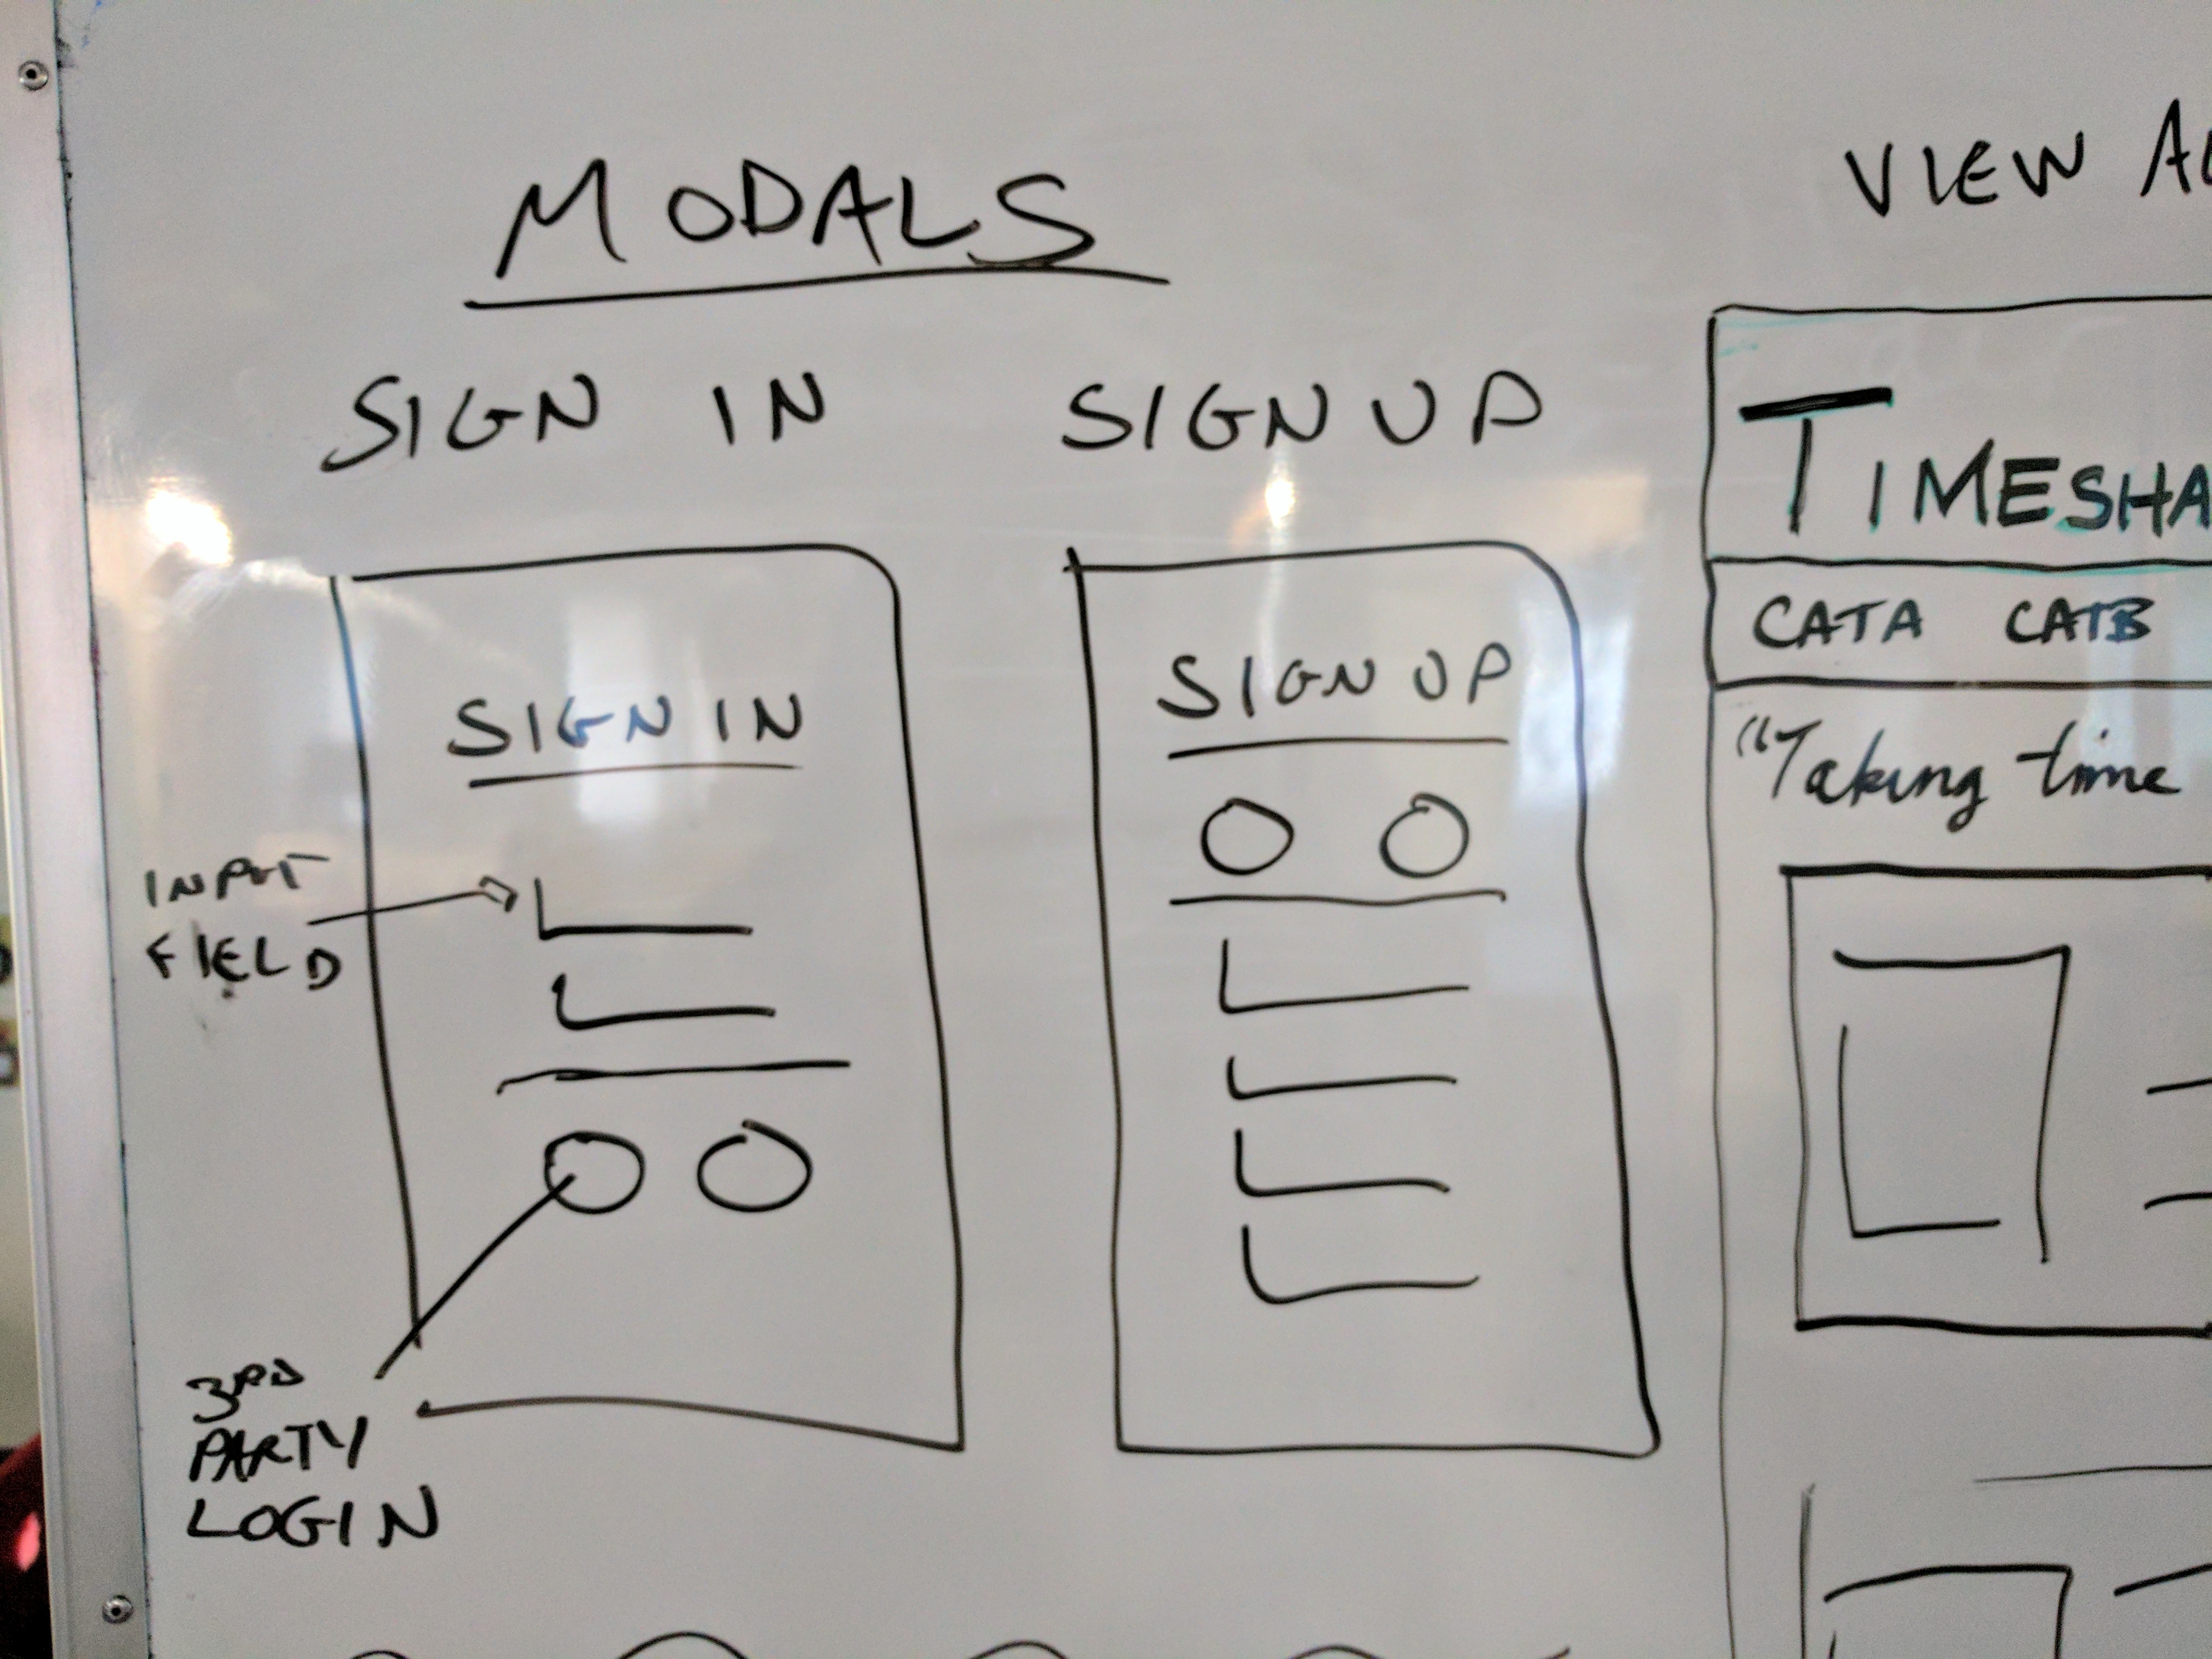 MODALS
SIGN IN
SIGN UP
SIGN IN
INPUT
FIELD
3RD
PARTY
LOGIN
SIGN UP
VIEW
TIMESHA
CATA CATB
"Taking time